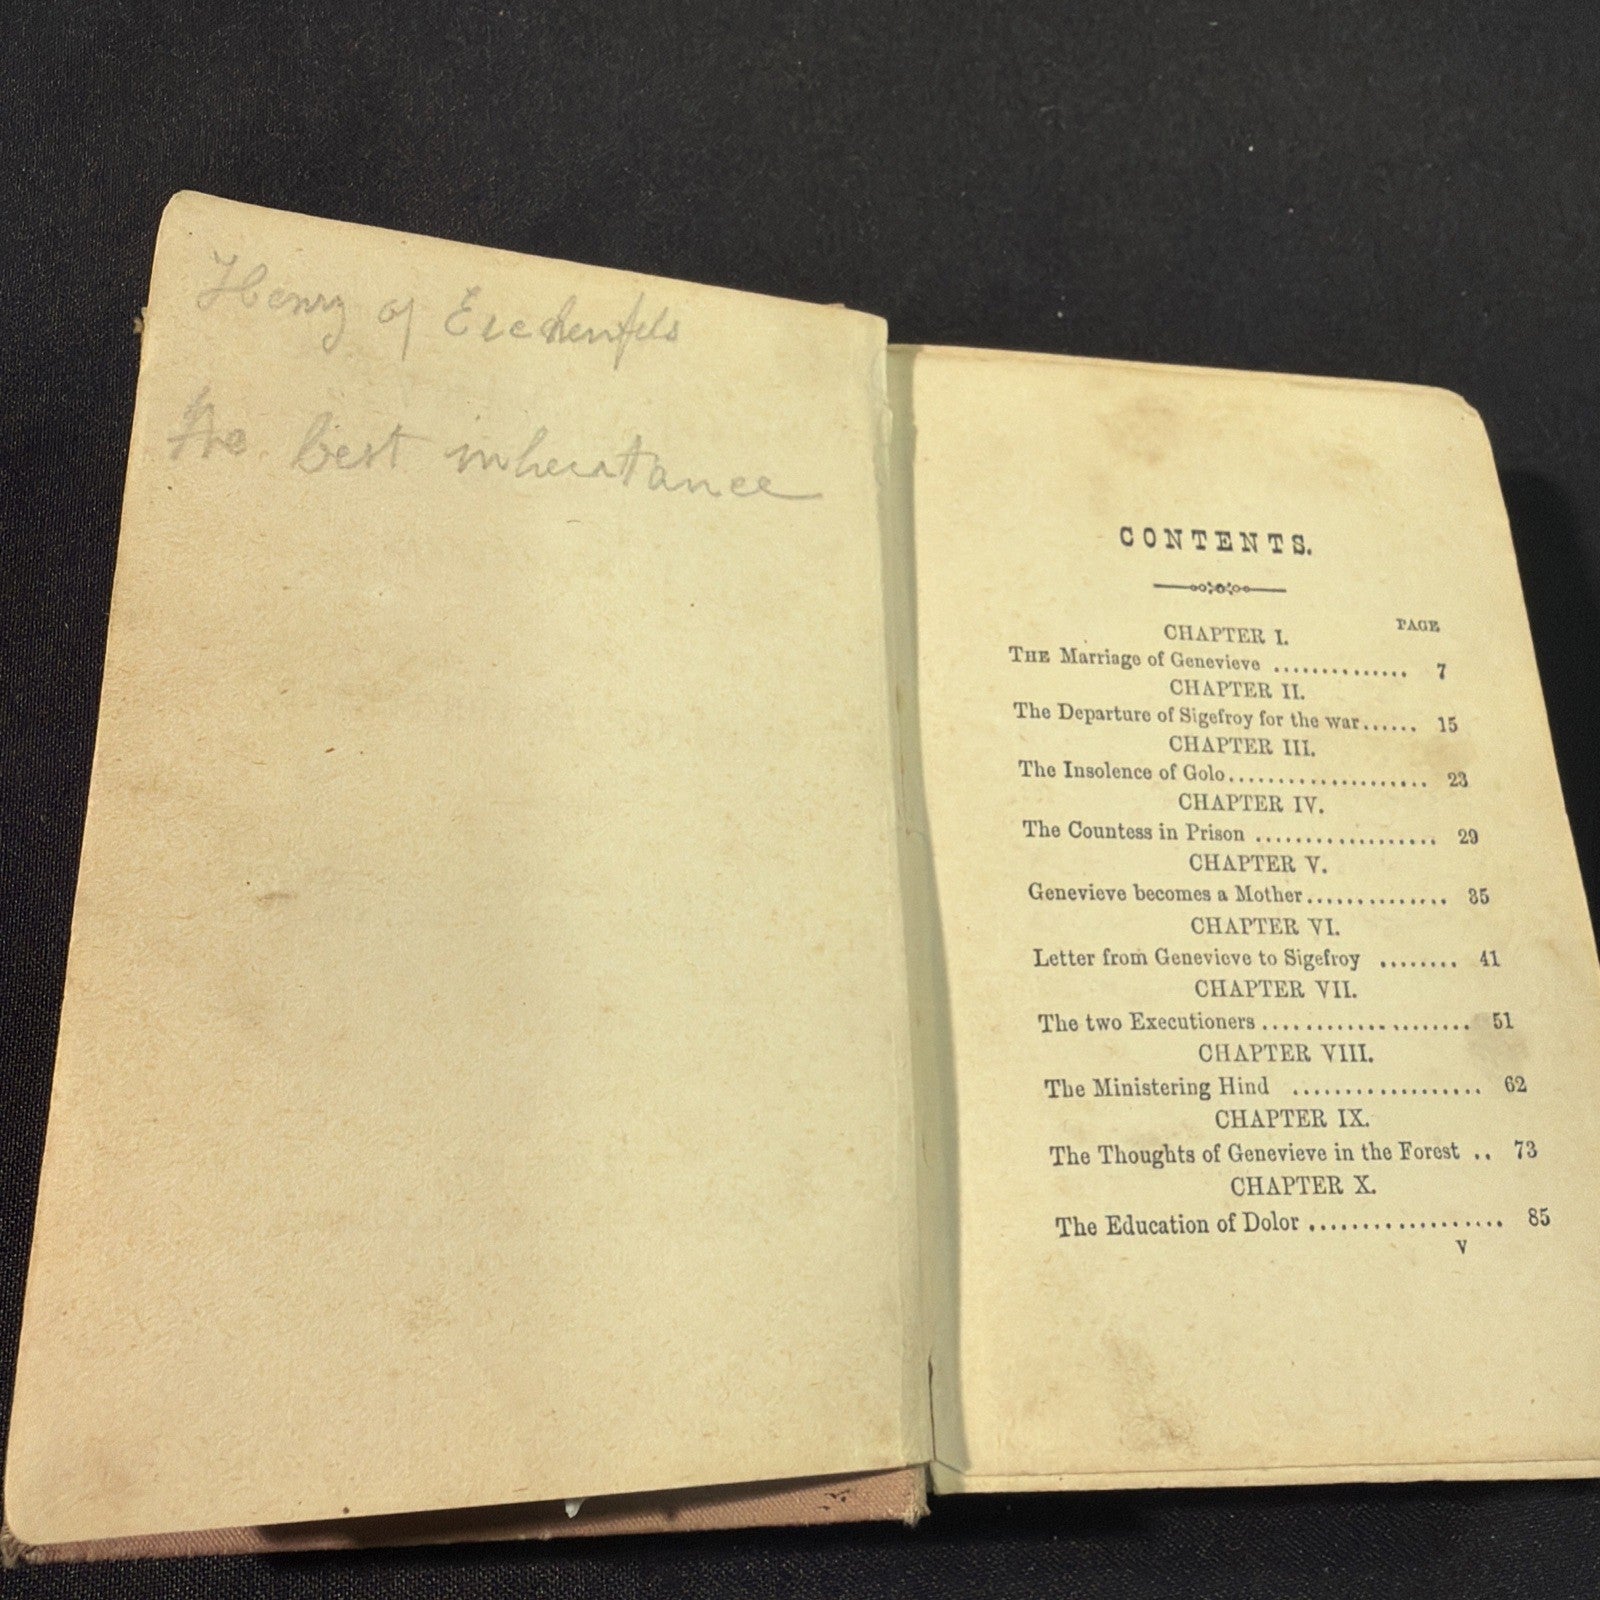 Henry of Eichenfels
the best inheratance
CONTENTS.
PAGE
CHAPTER I.
THE Marriage of Genevieve .............. 7
CHAPTER II.
The Departure of Sigefroy for the war...... 15
CHAPTER III.
The Insolence of Golo.................... 23
CHAPTER IV.
The Countess in Prison .................. 29
CHAPTER V.
Genevieve becomes a Mother.............. 35
CHAPTER VI.
Letter from Genevieve to Sigefroy ........ 41
CHAPTER VII.
The two Executioners..................... 51
CHAPTER VIII.
The Ministering Hind .................. 62
CHAPTER IX.
The Thoughts of Genevieve in the Forest .. 73
CHAPTER X.
The Education of Dolor................... 85
V